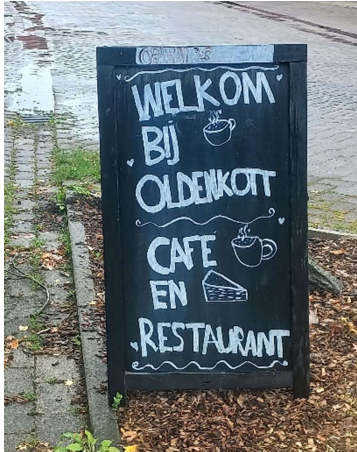 WELKOM
BIJ
OLDENKOTT
CAFE
EN
RESTAURANT